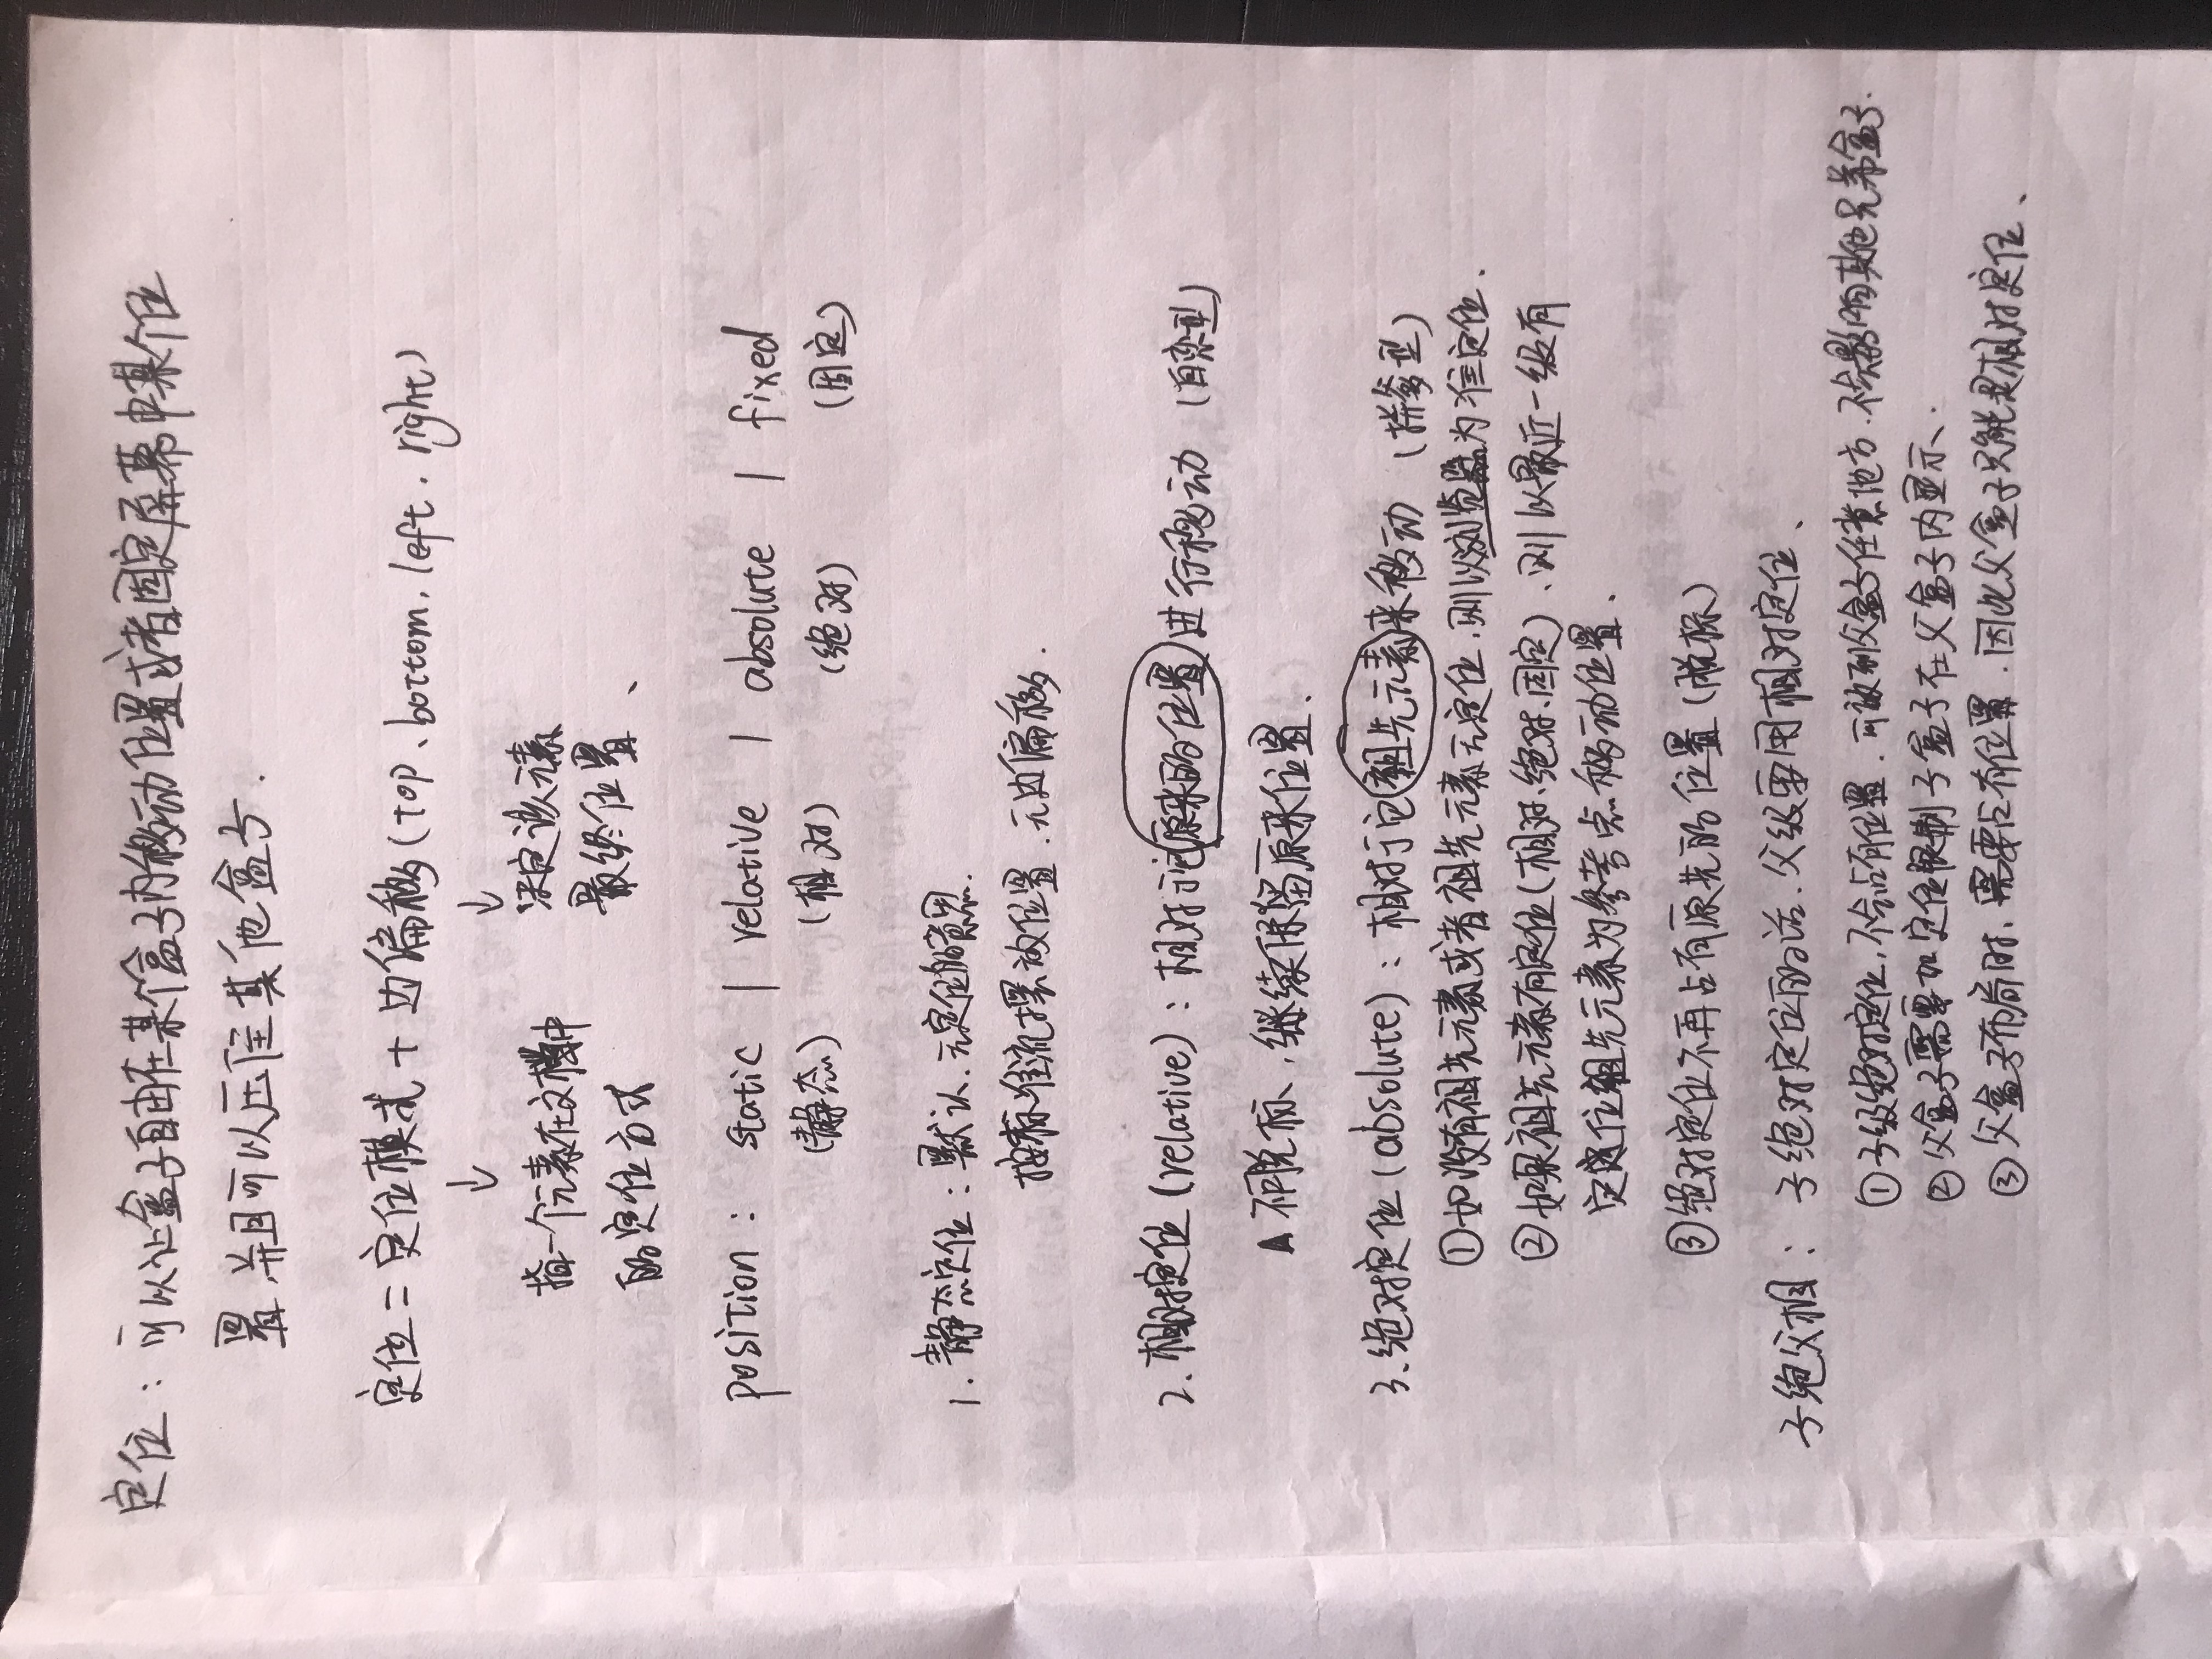 定位：可以让盒子自由在某个盒子内移动位置或者固定屏幕中某个位
置,并且可以压住其他盒子.
定位=定位模式+边偏移(top、bottom、left、right)
↓ ↓
指一个元素在文档中 决定该元素
的定位方式 最终位置、
position: static | relative | absolute | fixed
(静态) (相对) (绝对) (固定)
1.静态定位:默认.无定位的意思.
按标准流摆放位置.无边偏移.
2.相对定位(relative):相对于它原来的位置进行移动 (自恋型)
▲不脱标,继续保留原来位置.
3.绝对定位(absolute):相对于它祖先元素来移动 (拼爹型)
①如没有祖先元素或者祖先元素无定位.则以浏览器为准定位.
②如果祖先元素有定位(相对、绝对、固定)、则以最近一级有
定位祖先元素为参考点移动位置.
③绝对定位不再占有原先的位置(脱标)
子绝父相:子绝对定位的话.父级要用相对定位、
①子级绝对定位,不会占有位置.可放到父盒子任意地方.不会影响其他兄弟盒子.
②父盒子需要加定位限制子盒子在父盒子内显示.
③父盒子布局时、需要占有位置.因此父盒子只能是相对定位、